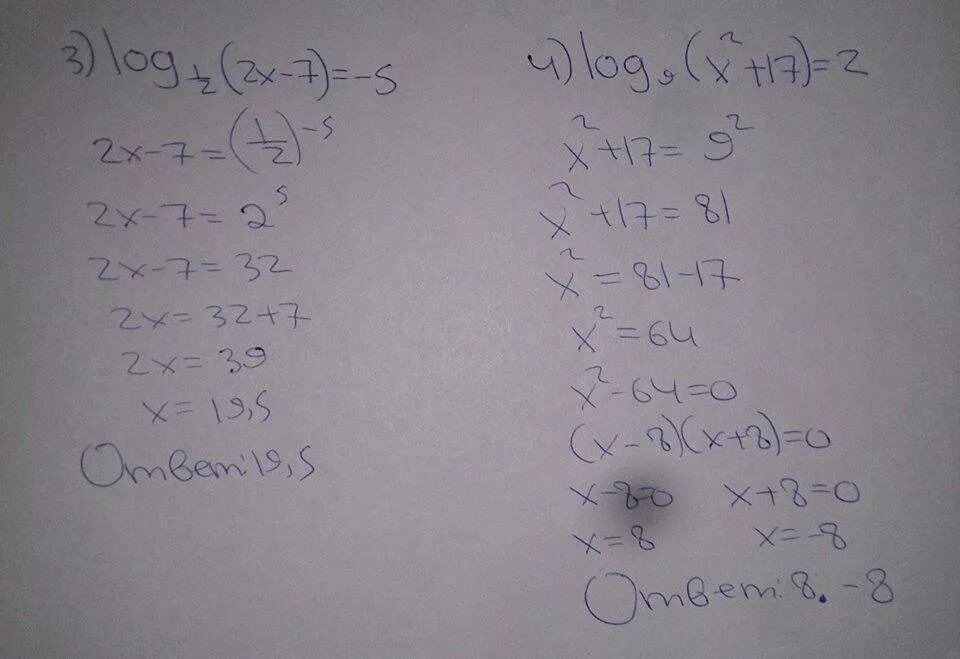 3) log_{1/2}(2x-7)=-5
2x-7=(1/2)^{-5}
2x-7=2^5
2x-7=32
2x=32+7
2x=39
x=19,5
Ответ:19,5
4) log_9(x^2+17)=2
x^2+17=9^2
x^2+17=81
x^2=81-17
x^2=64
x^2-64=0
(x-8)(x+8)=0
x-8=0 x+8=0
x=8 x=-8
Ответ:8. -8